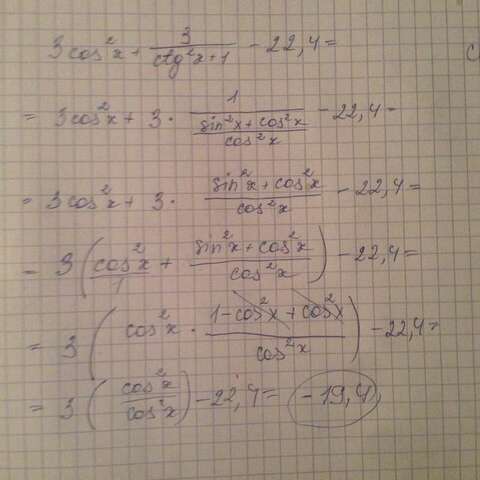 3cos²x + 3/(ctg²x+1) - 22,4 =
= 3cos²x + 3 · 1/((sin²x + cos²x)/cos²x) - 22,4 =
= 3cos²x + 3 · (sin²x + cos²x)/cos²x - 22,4 =
= 3(cos²x/1 + (sin²x + cos²x)/cos²x) - 22,4 =
= 3(cos²x · (1 - cos²x + cos²x)/cos²x) - 22,4 =
= 3(cos²x/cos²x) - 22,4 = -19,4